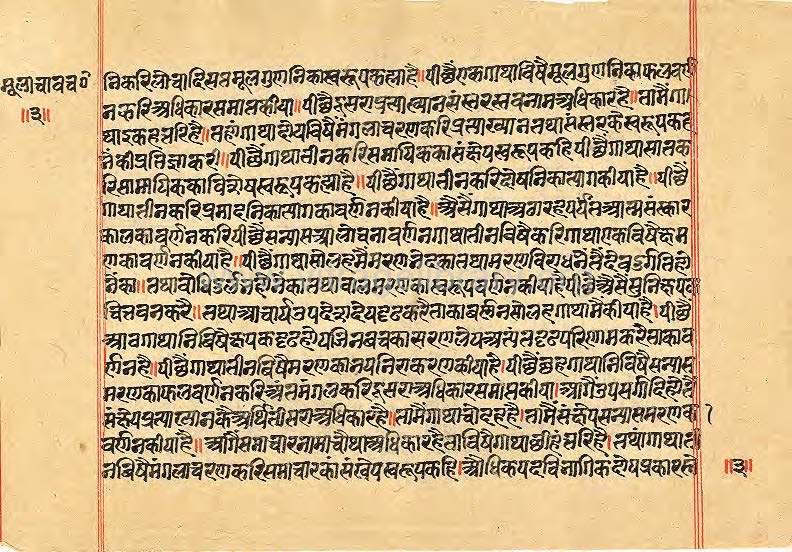 मूलाचारवच०
॥३॥
निकरि लोचादिसव मूलगुणनिका स्वरूप कह्या है॥ पीछै एकगाथाविषै मूलगुणनिका फल वर्ण
न करि अधिकार समाप्त कीया॥ पीछै दूसरा प्रत्याख्यानसंस्तरस्तव नाम अधिकार है॥ तामै गा
करि मंगलाचरणकरि प्रत्याख्यान तथा संस्तरके स्वरूप कह
नेकी प्रतिज्ञा करी॥ पीछै गाथा तीनकरि सामायिकका संक्षेप स्वरूप कहि पीछै गाथा सातक
रि सामायिकका विशेष स्वरूप कह्या है॥ पीछै गाथा तीनकरि दोषनिका त्याग कीया है॥ पीछै
गाथा तीनकरि प्रमादनिका त्यागका वर्णन कीया है॥ अैसै गाथा अठारह पर्यंत आत्मसंस्कार
कालका वर्णन करि पीछै सन्यास आलोचना वर्णन गाथा तीनविषै करि गाथा एकविषै क्षम
णका वर्णन कीया है॥ पीछै गाथा सोलहमै मरणभेदका तथा मरण
वर्णन कीया है पीछै अैसै मुनि क्षपक
चिंतवन करै॥ तथा आचार्य उपदेश देय दृढ करै ताका वर्णन सोलह गाथामै कीया है॥ पीछै
आठ गाथानिविषै क्षपक दृढ होय जिनवचनका सरण लेय अत्यंत दृढ परिणाम करै ताका व
र्णन है॥ पीछै गाथा तीनविषै मरणका भय निराकरण कीया है॥ पीछै छह गाथानिविषै सन्यास
मरणका फल वर्णन करि अंतमंगल करि दूसरा अधिकार समाप्त कीया॥ आगै उपसर्गादि होतै
संक्षेप प्रत्याख्यानकै अर्थि तीसरा अधिकार है॥ तामै गाथा चौदह है॥ तामै संक्षेप सन्यासमरणका
वर्णन कीया है॥ आगै समाचारनामा चौथा अधिकार है ताविषै गाथा छीहंतरि है॥ तहां गाथा दो
नविषै मंगलाचरण करि समाचारका संक्षेप स्वरूप कहि। औधिक पदविभागिक दोय प्रकार
॥३॥